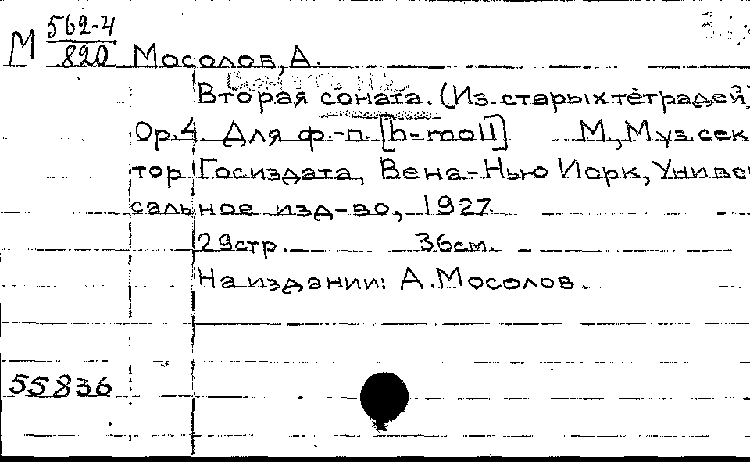 М 562-4
820
Мосолов, А.
Вторая соната. (Из старых тетрадей)
Ор. 4. Для ф.-п. [h-moll] М, Муз. сек
тор Госиздата, Вена-Нью Йорк, Универ
сальное изд-во, 1927.
29стр. 36см.
На издании: А. Мосолов.
55836